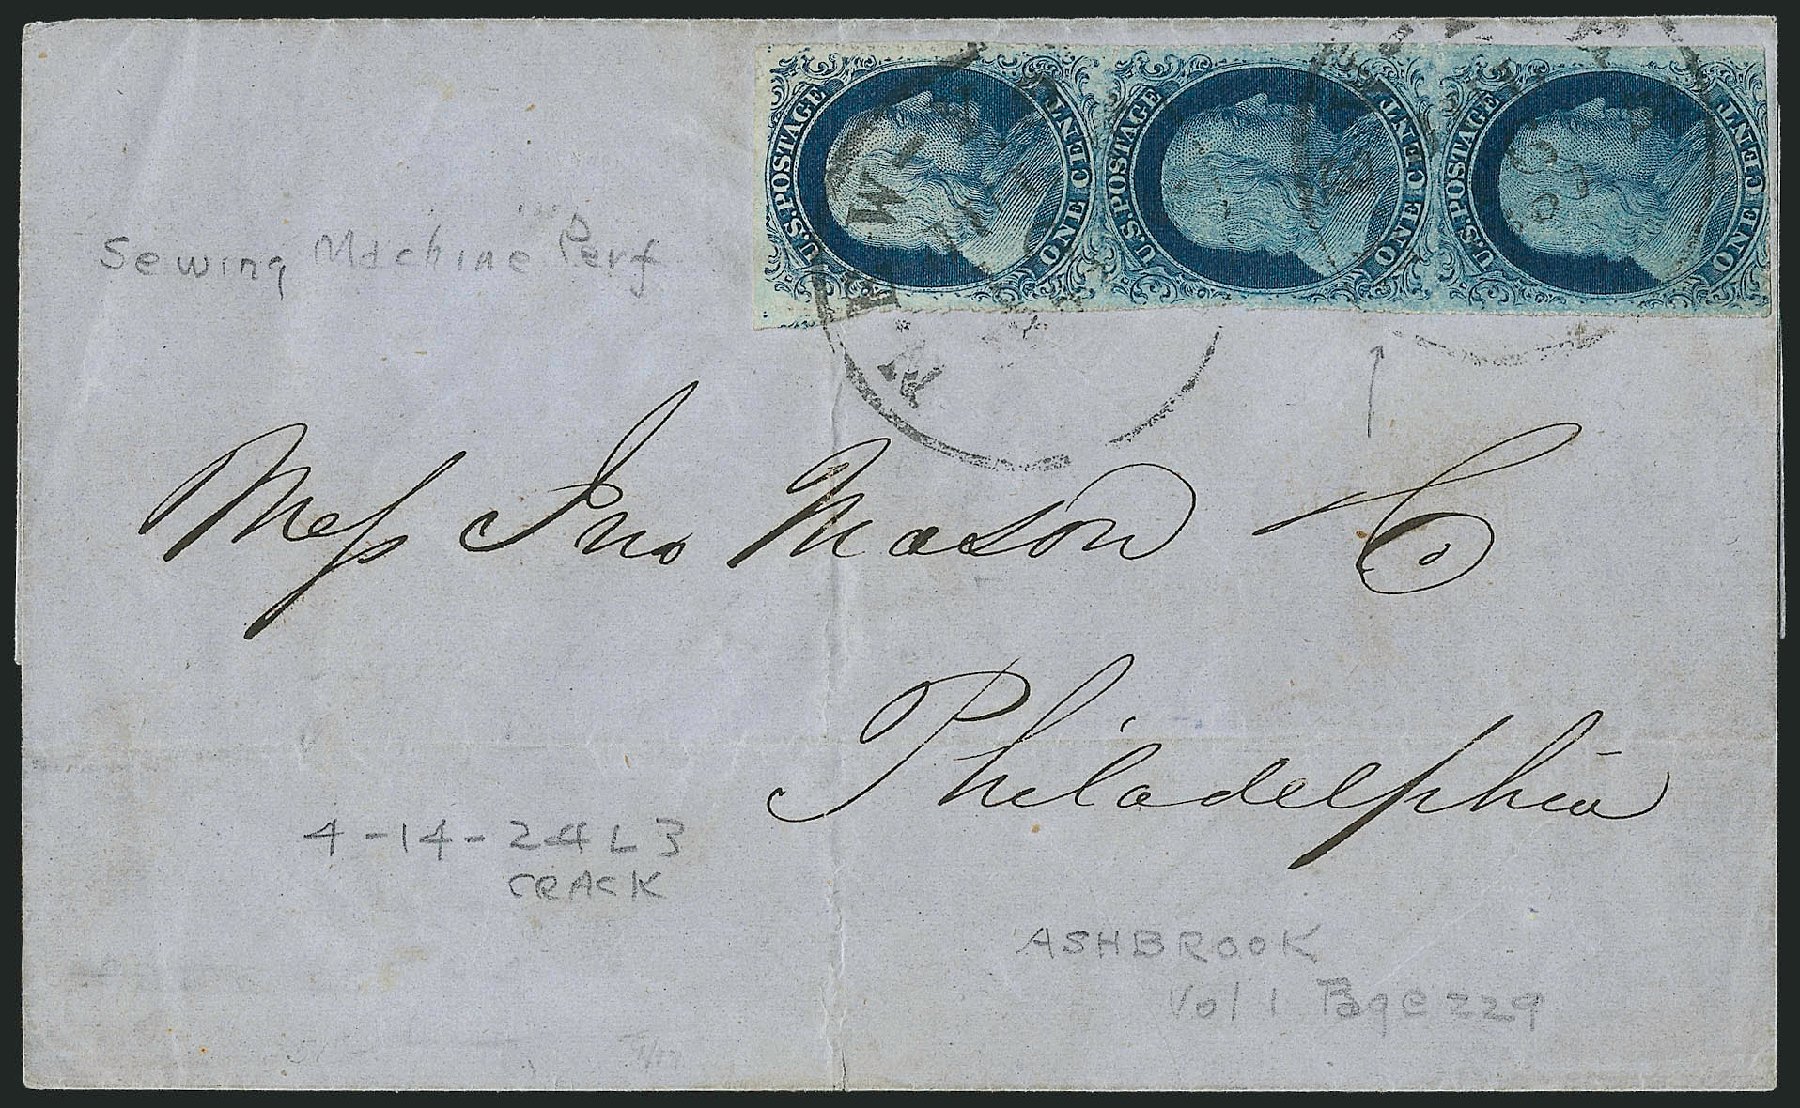 U.S. POSTAGE ONE CENT
U.S. POSTAGE ONE CENT
U.S. POSTAGE ONE CENT
Sewing Machine Perf
Mess Jno Mason & Co
Philadelphia
4-14-24 L 3
CRACK
ASHBROOK
Vol 1 Page 229